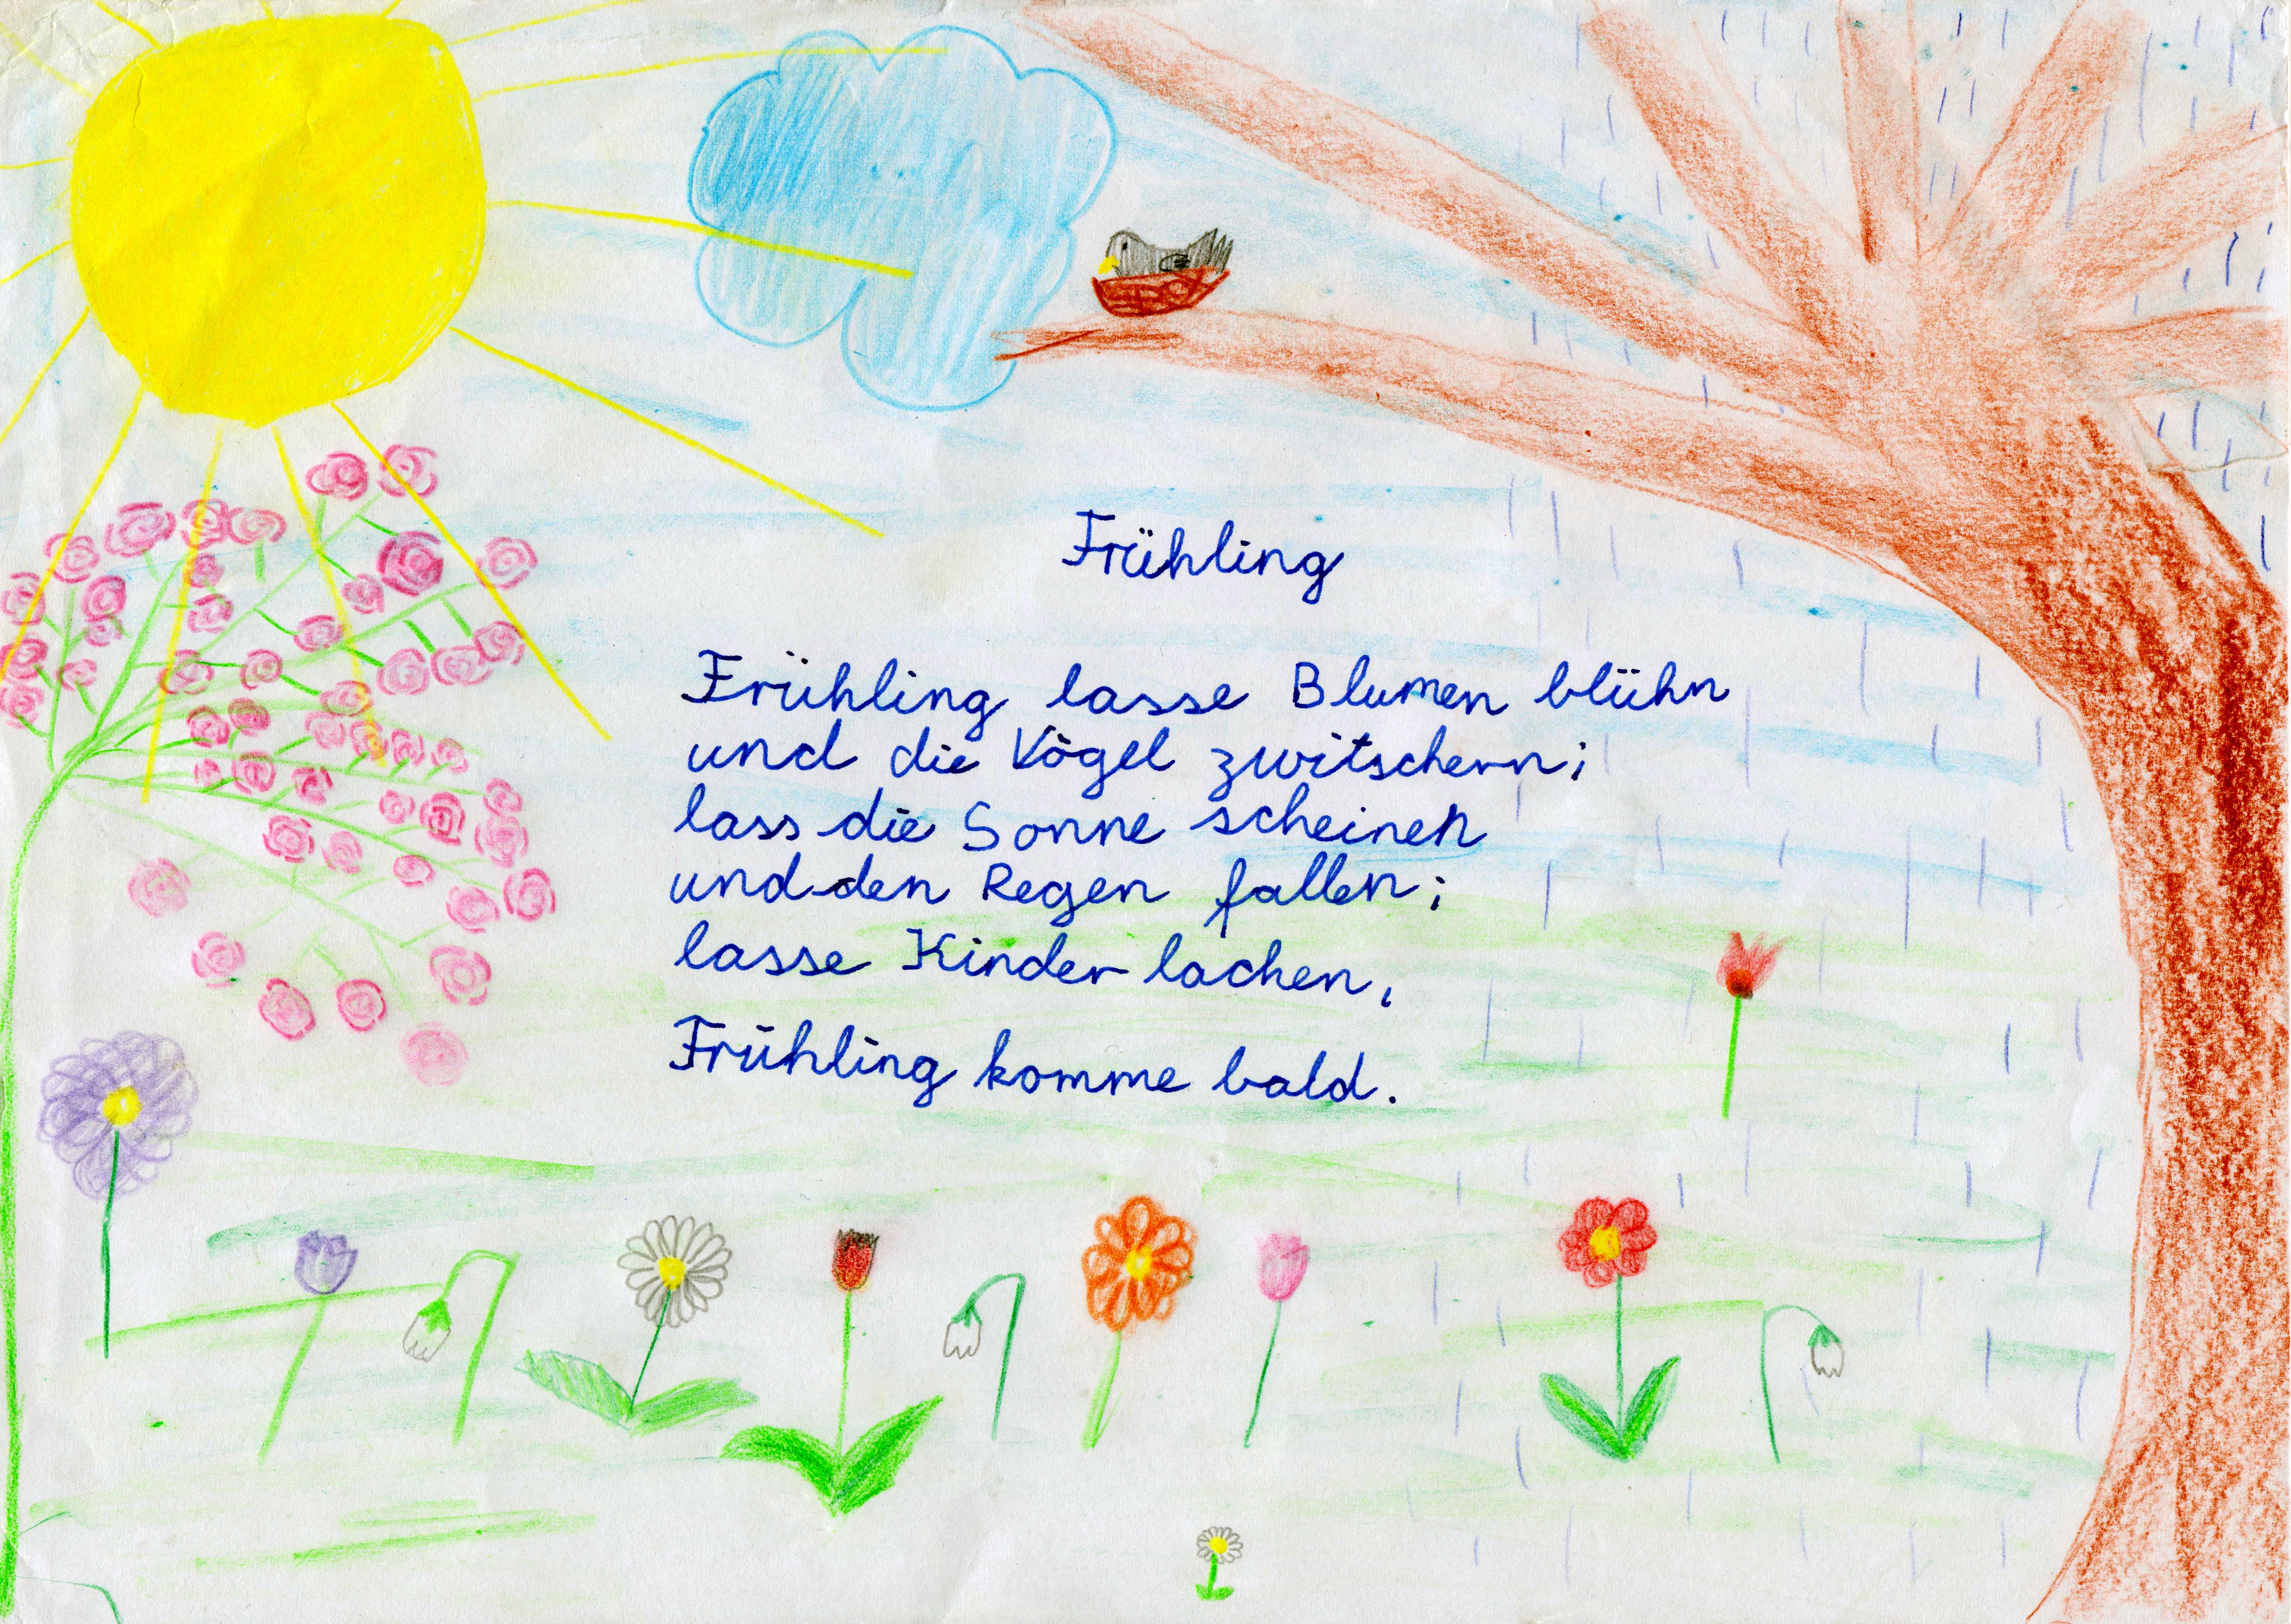 Frühling
Frühling lasse Blumen blühn
und die Vögel zwitschern;
lass die Sonne scheinen
und den Regen fallen;
lasse Kinder lachen,
Frühling komme bald.